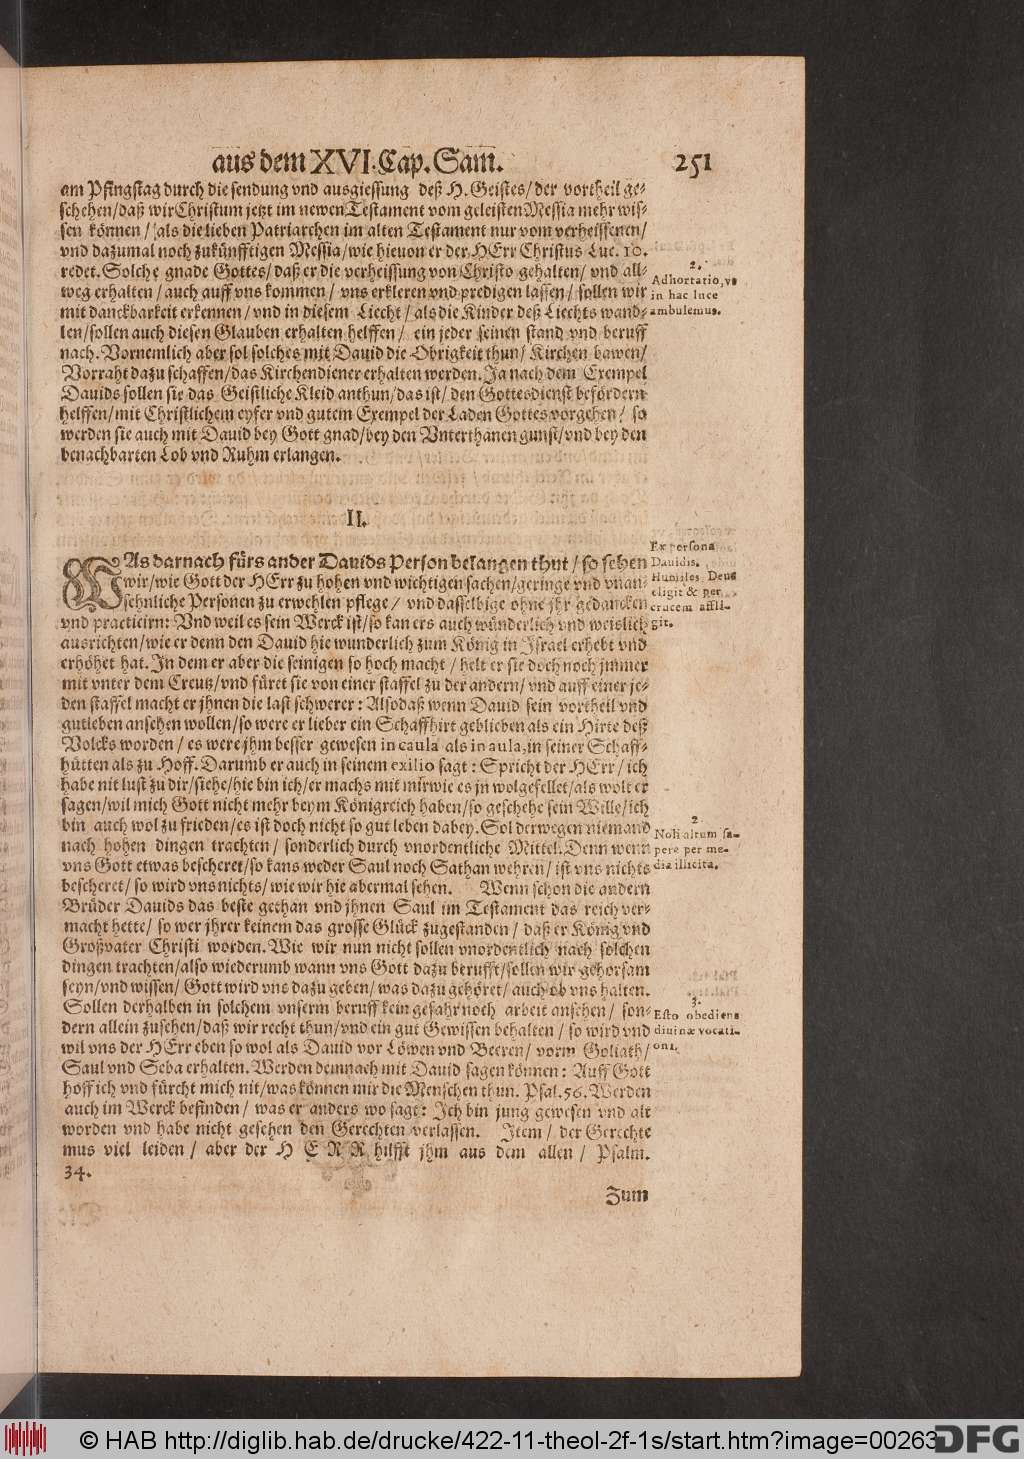 aus dem XVI. Cap. Sam. 251
am Pfingstag durch die sendung vnd ausgiessung deß H. Geistes/ der vortheil ge-
schehen/daß wir Christum jetzt im newen Testament vom geleisten Messia mehr wis-
sen können/ als die lieben Patriarchen im alten Testament nur vom verheissenen/
vnd dazumal noch zukünfftigen Messia/ wie hieuon er der HErr Christus Luc. 10.
redet. Solche gnade Gottes/ daß er die verheissung von Christo gehalten/ vnd all-
weg erhalten/ auch auff vns kommen/ vns erkleren vnd predigen lassen/ sollen wir
mit danckbarkeit erkennen/ vnd in diesem Liecht/ als die Kinder deß Liechts wand-
len/sollen auch diesen Glauben erhalten helffen/ ein jeder seinen stand vnd beruff
nach. Vornemlich aber sol solches mit Dauid die Obrigkeit thun/ Kirchen bawen/
Vorraht dazu schaffen/das Kirchendiener erhalten werden. Ja nach dem Exempel
Dauids sollen sie das Geistliche Kleid anthun/das ist/ den Gottesdienst befördern
helffen/mit Christlichem eyfer vnd gutem Exempel der Laden Gottes vorgehen/ so
werden sie auch mit Dauid bey Gott gnad/bey den Vnterthanen gunst/vnd bey den
benachbarten Lob vnd Ruhm erlangen.
2.
Adhortatio, vt
in hac luce
ambulemus.
II.
WAs darnach fürs ander Dauids Person belangen thut/ so sehen
wir/wie Gott der HErr zu hohen vnd wichtigen sachen/geringe vnd vnan-
sehnliche Personen zu erwehlen pflege/ vnd dasselbige ohne jhr gedancken
vnd practicirn: Vnd weil es sein Werck ist/so kan ers auch wünderlich vnd weislich
ausrichten/wie er denn den Dauid hie wunderlich zum König in Israel erhebt vnd
erhöhet hat. In dem er aber die seinigen so hoch macht/ helt er sie doch noch jmmer
mit vnter dem Creutz/vnd füret sie von einer staffel zu der andern/ vnd auff einer je-
den staffel macht er jhnen die last schwerer: Also daß wenn Dauid sein vortheil vnd
gutleben ansehen wollen/so were er lieber ein Schaffhirt geblieben als ein Hirte deß
Volcks worden/ es were jhm besser gewesen in caula als in aula, in seiner Schaff-
hütten als zu Hoff. Darumb er auch in seinem exilio sagt: Spricht der HErr/ ich
habe nit lust zu dir/siehe/hie bin ich/er machs mit mir wie es jn wolgefellet/als wolt er
sagen/wil mich Gott nicht mehr beym Königreich haben/so geschehe sein Wille/ich
bin auch wol zu frieden/es ist doch nicht so gut leben dabey. Sol derwegen niemand
nach hohen dingen trachten/ sonderlich durch vnordentliche Mittel. Denn wenn
vns Gott etwas bescheret/so kans weder Saul noch Sathan wehren/ ist vns nichts
bescheret/ so wird vns nichts/ wie wir hie abermal sehen. Wenn schon die andern
Brüder Dauids das beste gethan vnd jhnen Saul im Testament das reich ver-
macht hette/ so wer jhrer keinem das grosse Glück zugestanden/ daß er König vnd
Großvater Christi worden. Wie wir nun nicht sollen vnordentlich nach solchen
dingen trachten/also wiederumb wann vns Gott dazu berufft/sollen wir gehorsam
seyn/vnd wissen/ Gott wird vns dazu geben/ was dazu gehöret/ auch ob vns halten.
Sollen derhalben in solchem vnserm beruff kein gefahr noch arbeit ansehen/ son-
dern allein zusehen/daß wir recht thun/vnd ein gut Gewissen behalten/ so wird vnd
wil vns der HErr eben so wol als Dauid vor Löwen vnd Beeren/ vorm Goliath/
Saul vnd Seba erhalten. Werden demnach mit Dauid sagen können: Auff Gott
hoff ich vnd fürcht mich nit/was können mir die Menschen thun. Psal. 56. Werden
auch im Werck befinden/ was er anders wo sagt: Ich bin jung gewesen vnd alt
worden vnd habe nicht gesehen den Gerechten verlassen. Item/ der Gerechte
mus viel leiden/ aber der HERR hilfft jhm aus dem allen/ Psalm.
34.
Ex persona
Dauidis.
Humiles Deus
eligit & per
crucem affli-
git.
2.
Noli altum sa-
pere per me-
dia illicita.
3.
Esto obediens
diuinæ vocati-
oni.
Zum
© HAB http://diglib.hab.de/drucke/422-11-theol-2f-1s/start.htm?image=00263
DFG